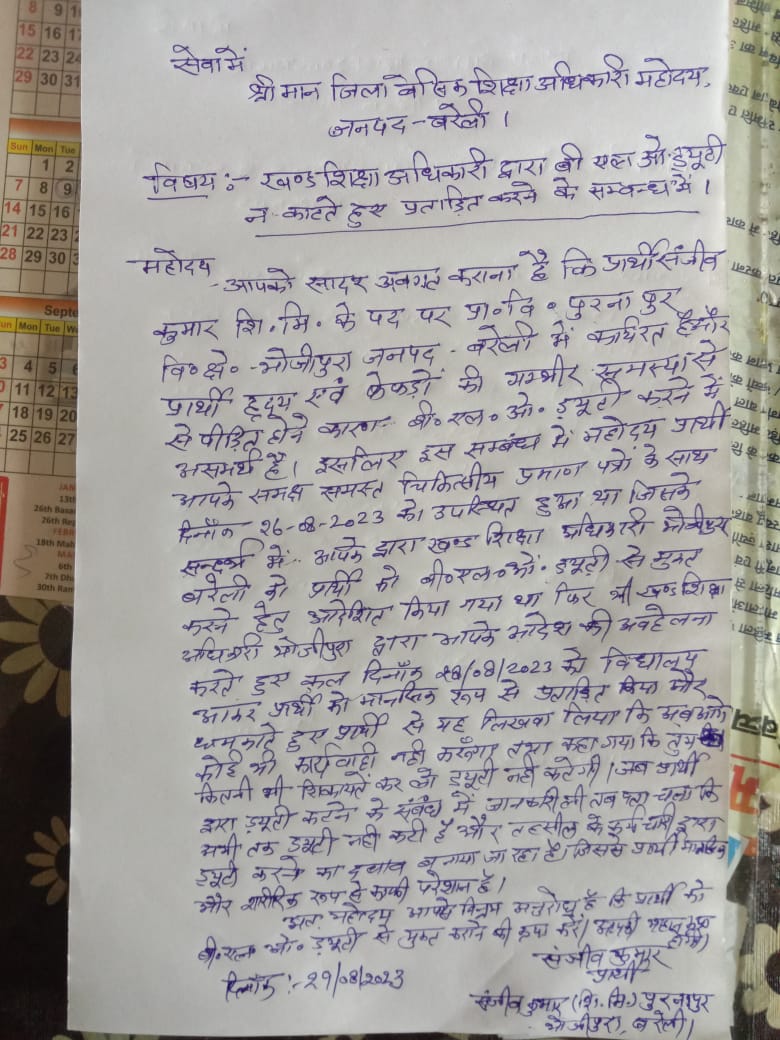 सेवा में
श्री मान जिला बेसिक शिक्षा अधिकारी महोदय,
जनपद - बरेली ।
विषय :- खण्ड शिक्षा अधिकारी द्वारा बी एल ओ ड्यूटी
न काटते हुए प्रताड़ित करने के सम्बन्ध में ।
महोदय
आपको सादर अवगत कराना है कि प्रार्थी संजीव
कुमार शि. मि. के पद पर प्रा. वि. पुरना पुर
वि० क्षे० - भोजीपुरा जनपद - बरेली में कार्यरत है और
प्रार्थी हृदय एवं फेफड़ों की गम्भीर समस्या से
से पीड़ित होने कारण बी. एल. ओ. ड्यूटी करने में
असमर्थ है। इसलिए इस सम्बंध में महोदय प्रार्थी
आपके समक्ष समस्त चिकित्सीय प्रमाण पत्रों के साथ
दिनाँक 26-08-2023 को उपस्थित हुआ था जिसके
सन्दर्भ में आपके द्वारा खण्ड शिक्षा अधिकारी भोजीपुरा
बरेली को प्रार्थी को बी. एल. ओ. ड्यूटी से मुक्त
करने हेतु आदेशित किया गया था फिर भी खण्ड शिक्षा
अधिकारी भोजीपुरा द्वारा आपके आदेश की अवहेलना
करते हुए कल दिनाँक 28/08/2023 को विद्यालय
आकर प्रार्थी को मानसिक रूप से प्रताड़ित किया और
धमकाते हुए प्रार्थी से यह लिखवा लिया कि अब आगे
कोई भी कार्यवाही नही करूँगा तथा कहा गया कि तुम
कितनी भी शिकायतें कर लो ड्यूटी नही कटेगी। जब प्रार्थी
द्वारा ड्यूटी कटने के संबंध में जानकारी ली तब पता चला कि
अभी तक ड्यूटी नही कटी है और तहसील के कर्मचारी द्वारा
ड्यूटी करने का दबाव बनाया जा रहा है। जिससे प्रार्थी मानसिक
और शारीरिक रूप से काफी परेशान है।
अतः महोदय आपसे विनम्र अनुरोध है कि प्रार्थी को
बी. एल. ओ. ड्यूटी से मुक्त कराने की कृपा करें। आपकी महान कृपा
होगी।
संजीव कुमार
प्रार्थी
दिनाँक :- 29/08/2023
संजीव कुमार (शि. मि.) पुरनापुर
भोजीपुरा, बरेली।
8 9
15 16
22 23
29 30 31
Sun Mon Tue
1 2
7 8 9
14 15 16
21 22 23
28 29 30
Septe
Mon Tue
4 5
10 11 12
17 18 19 20
25 26 27